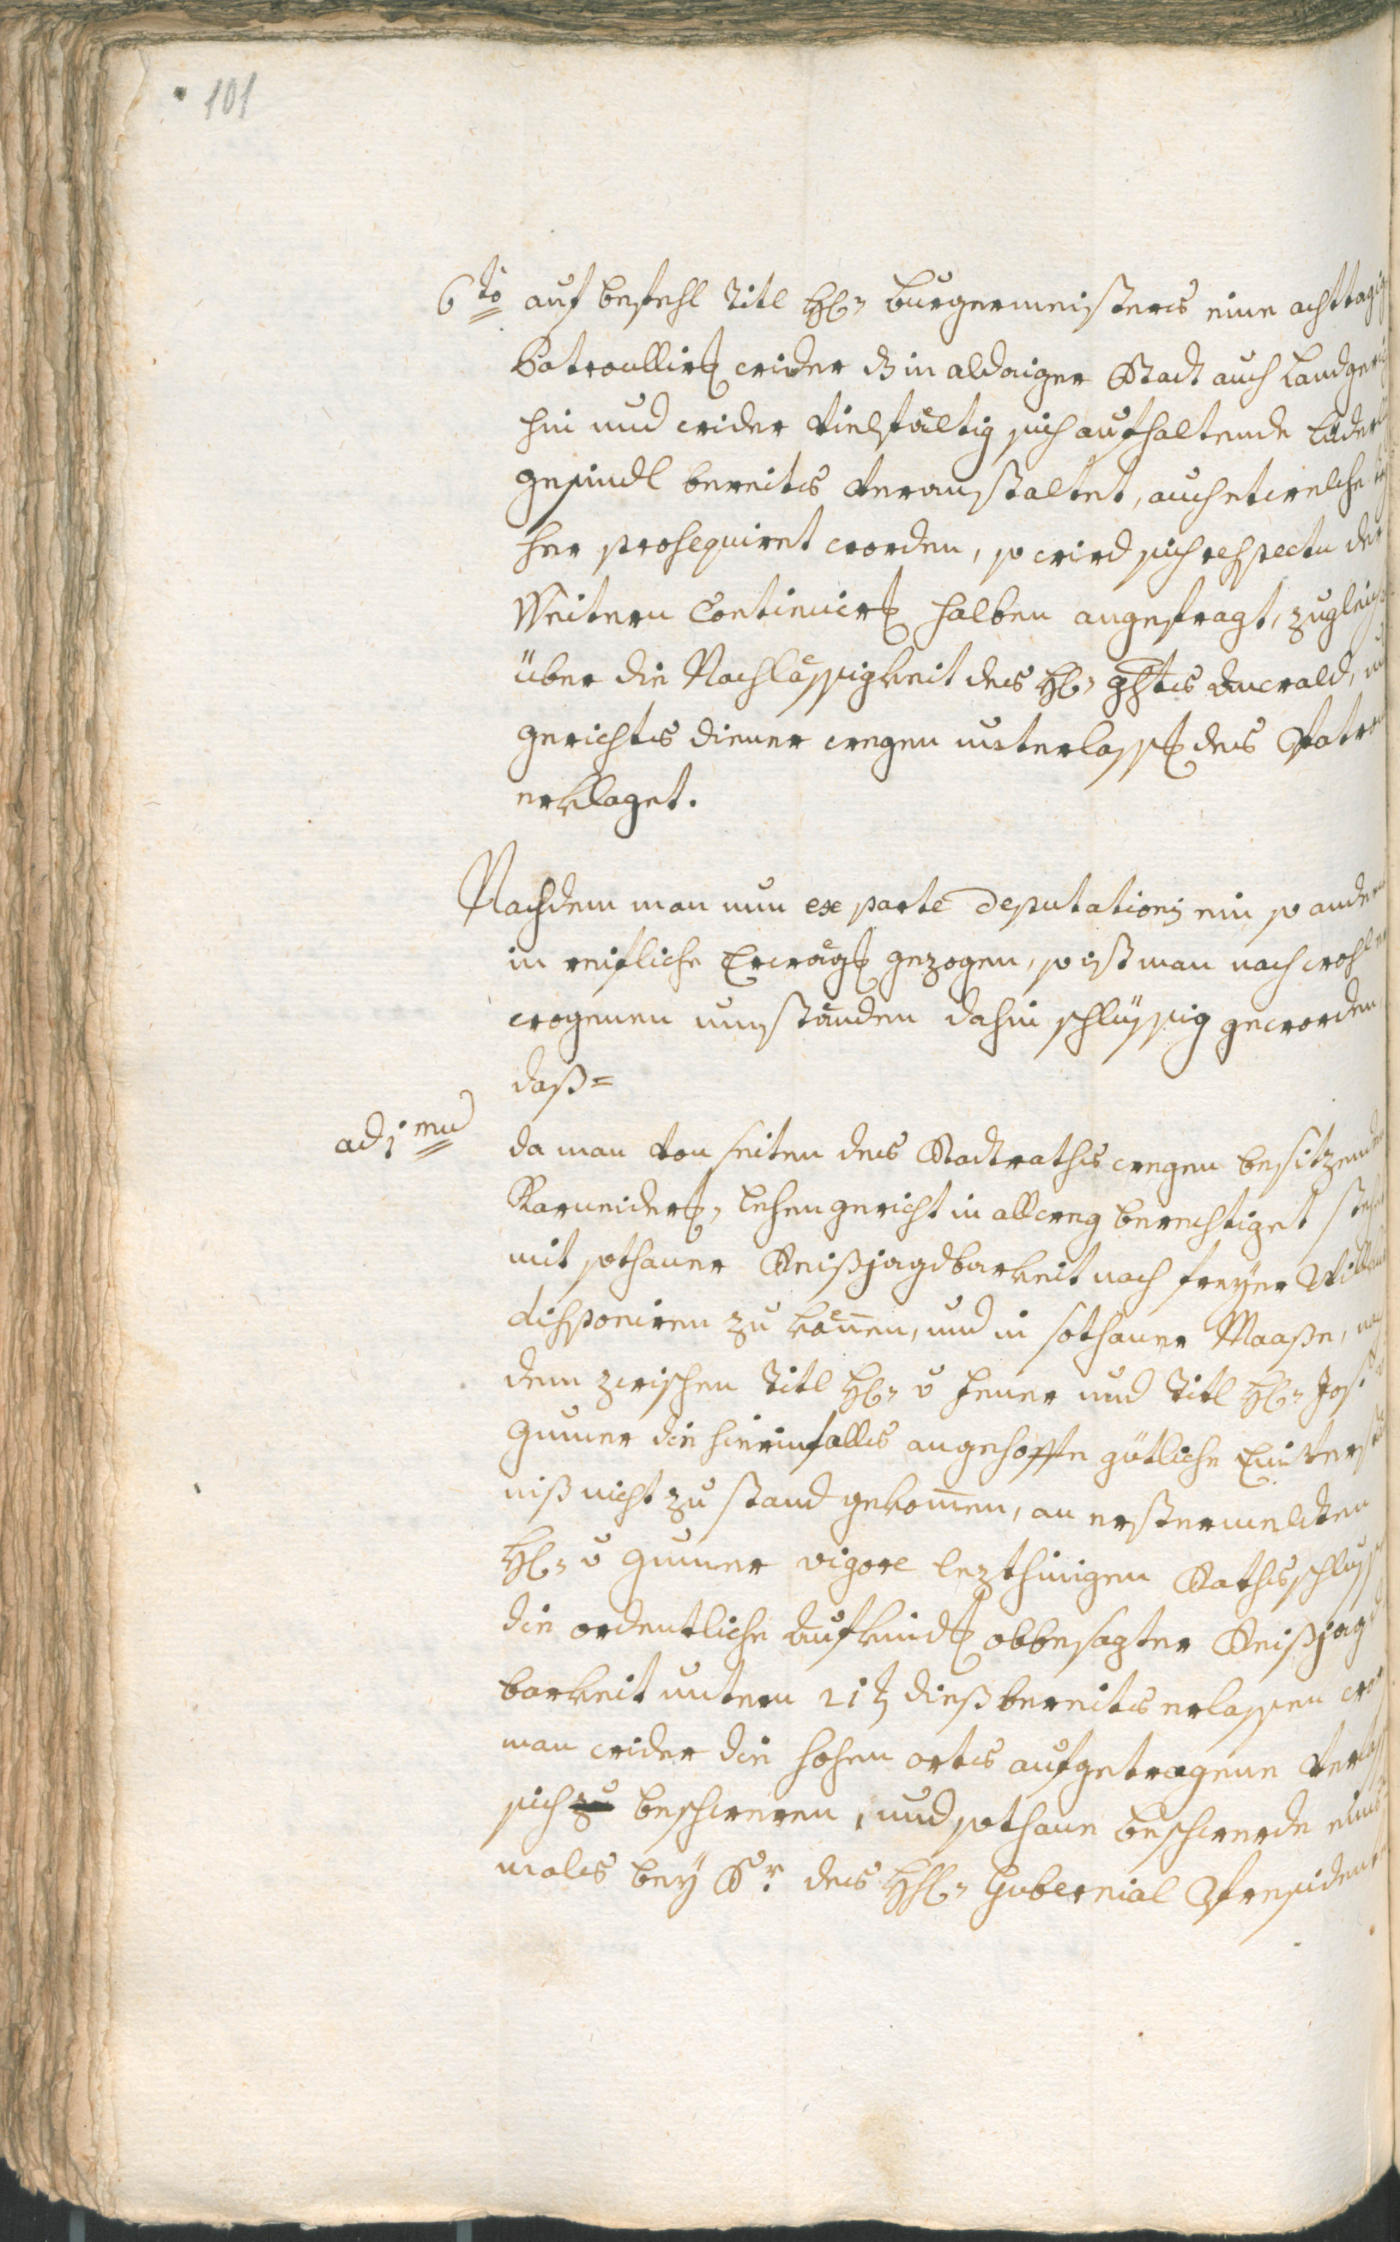 101
6to auf befehl Titl H: burgermeisters eine achttagig
Patroullirg wider dz in aldaiger Stadt auch Landger
hin und wider vielfältig sich aufhaltende Luder
gesindl bereits veranstaltet, auch etwelche
her prosequiret worden, so wird sich respectu der
Weitern Continuirg halben angefragt, zugleich
über die Nachlässigkeit des H: ghts anwald,
gerichts diener wegen unterlassg des Patro
erklaget.
Nachdem man nun ex parte Deputationis ein so ander
in reifliche Erwägg gezogen, so ist man nach wohl er
wogenen umständen dahin schlüssig geworden
daß=
ad 1mu da man von seiten des Stadtraths wegen besitzender
Karneiderg: lehengericht in allweg berechtiget stehe
mit sothaner Reißjagdbarkeit nach freyer Willkur
disponiren zu können, und in sothaner Maaße, nach
dem zwischen Titl H: v hener und Titl H: Jos:
gumer die hierinfalls angehoffte gütliche Einverst
niß nicht zu stand gekommen, an ersternelten
H: v gumer vigore lezthinigen Rathsschluss
die ordentliche Aufkindg obbesagter Reißjagd
barkeit untern 21t dieß bereits erlassen wor
man wider die hohen orts aufgetragene Verlass
sich zu beschweren, und sothane beschwerde
mals bey Sr. des HH: Gubernial President